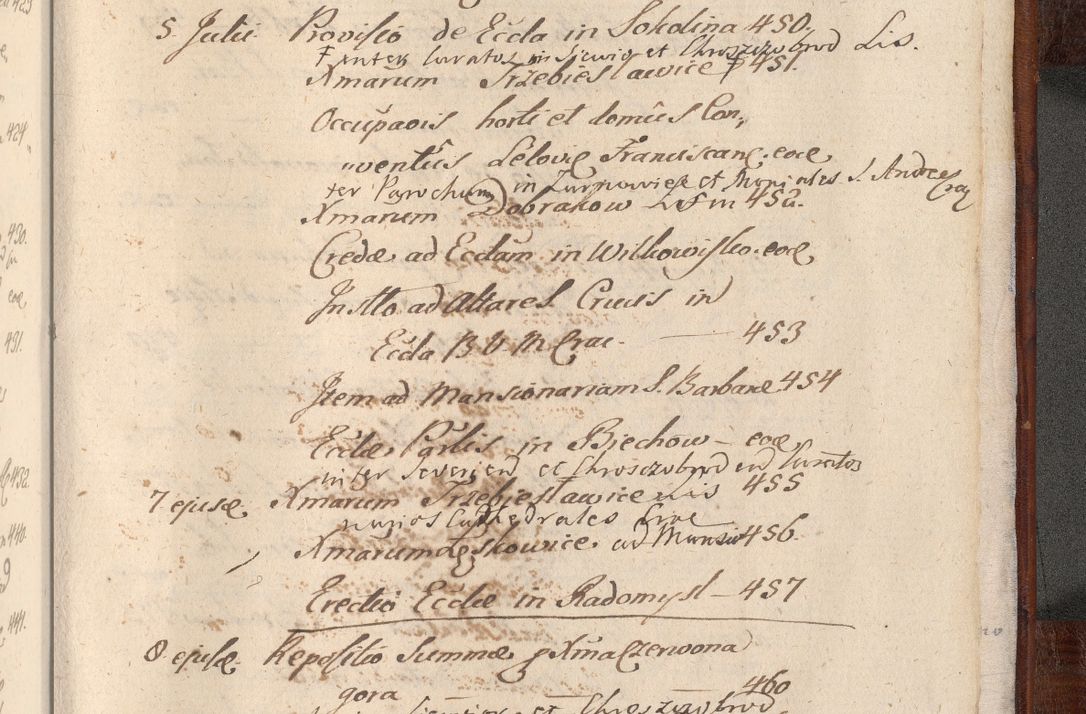 5 Julii Provisio de Eccla in Sokolina 450.
Ŧ inter Curatos in Siewior et Chroszczobrod Lis.
Xmarum Trzebiesławice Ŧ 451.
Occupaois horti et domûs Con„
„ventûs Leloviẹ Franciscanẹ. eoẹ
ter Parochum in Zurnowiec et Moniales S. Andreẹ Crac
Xmarum Dobrakow 452.
Credẹ ad Ecclam in Wilkowisko. eoẹ
Instto ad Altare S. Crucis in
Eccla B V M Crac. — 453
Item ad Mansionariam S. Barbarẹ 454
Ecclẹ Parlis in Biechow — eoẹ
inter Severien et Chroszczobrod Curatos
7 ejusẹ Xmarum Trzebiesławice Lis 455
Cathedrales Crac
Xmarum Lẹskowice ad 456.
Erectio Ecclẹ in Radomysl — 457
8 ejusẹ. Repositio Summẹ Xma Czerwona
gora — 460
et Chroszczobrod
430.
eoẹ
431.
432.
440.
441.